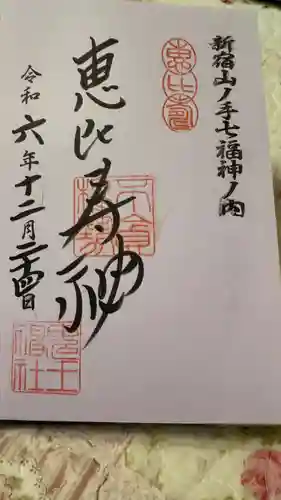 新宿山ノ手七福神ノ内
恵比寿
恵比寿神
令和六年十二月二十四日